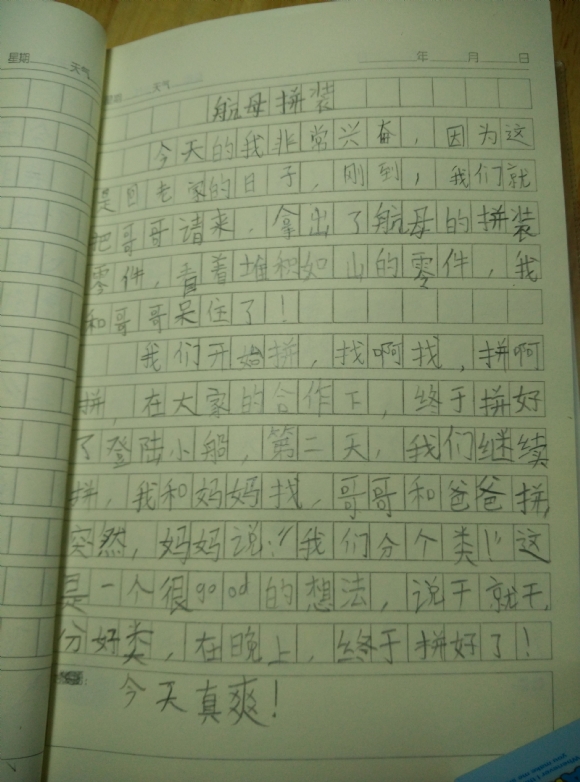 星期 天气
星期 天气 年 月 日
航母拼装
今天的我非常兴奋，因为这
是回老家的日子，刚到，我们就
把哥哥请来，拿出了航母的拼装
零件，看着堆积如山的零件，我
和哥哥呆住了！
我们开始拼，找啊找，拼啊
拼，在大家的合作下，终于拼好
了登陆小船，第二天，我们继续
拼，我和妈妈找，哥哥和爸爸拼，
突然，妈妈说：“我们分个类！”这
是一个很good的想法，说干就干，
分好类，在晚上，终于拼好了！
今天真爽！